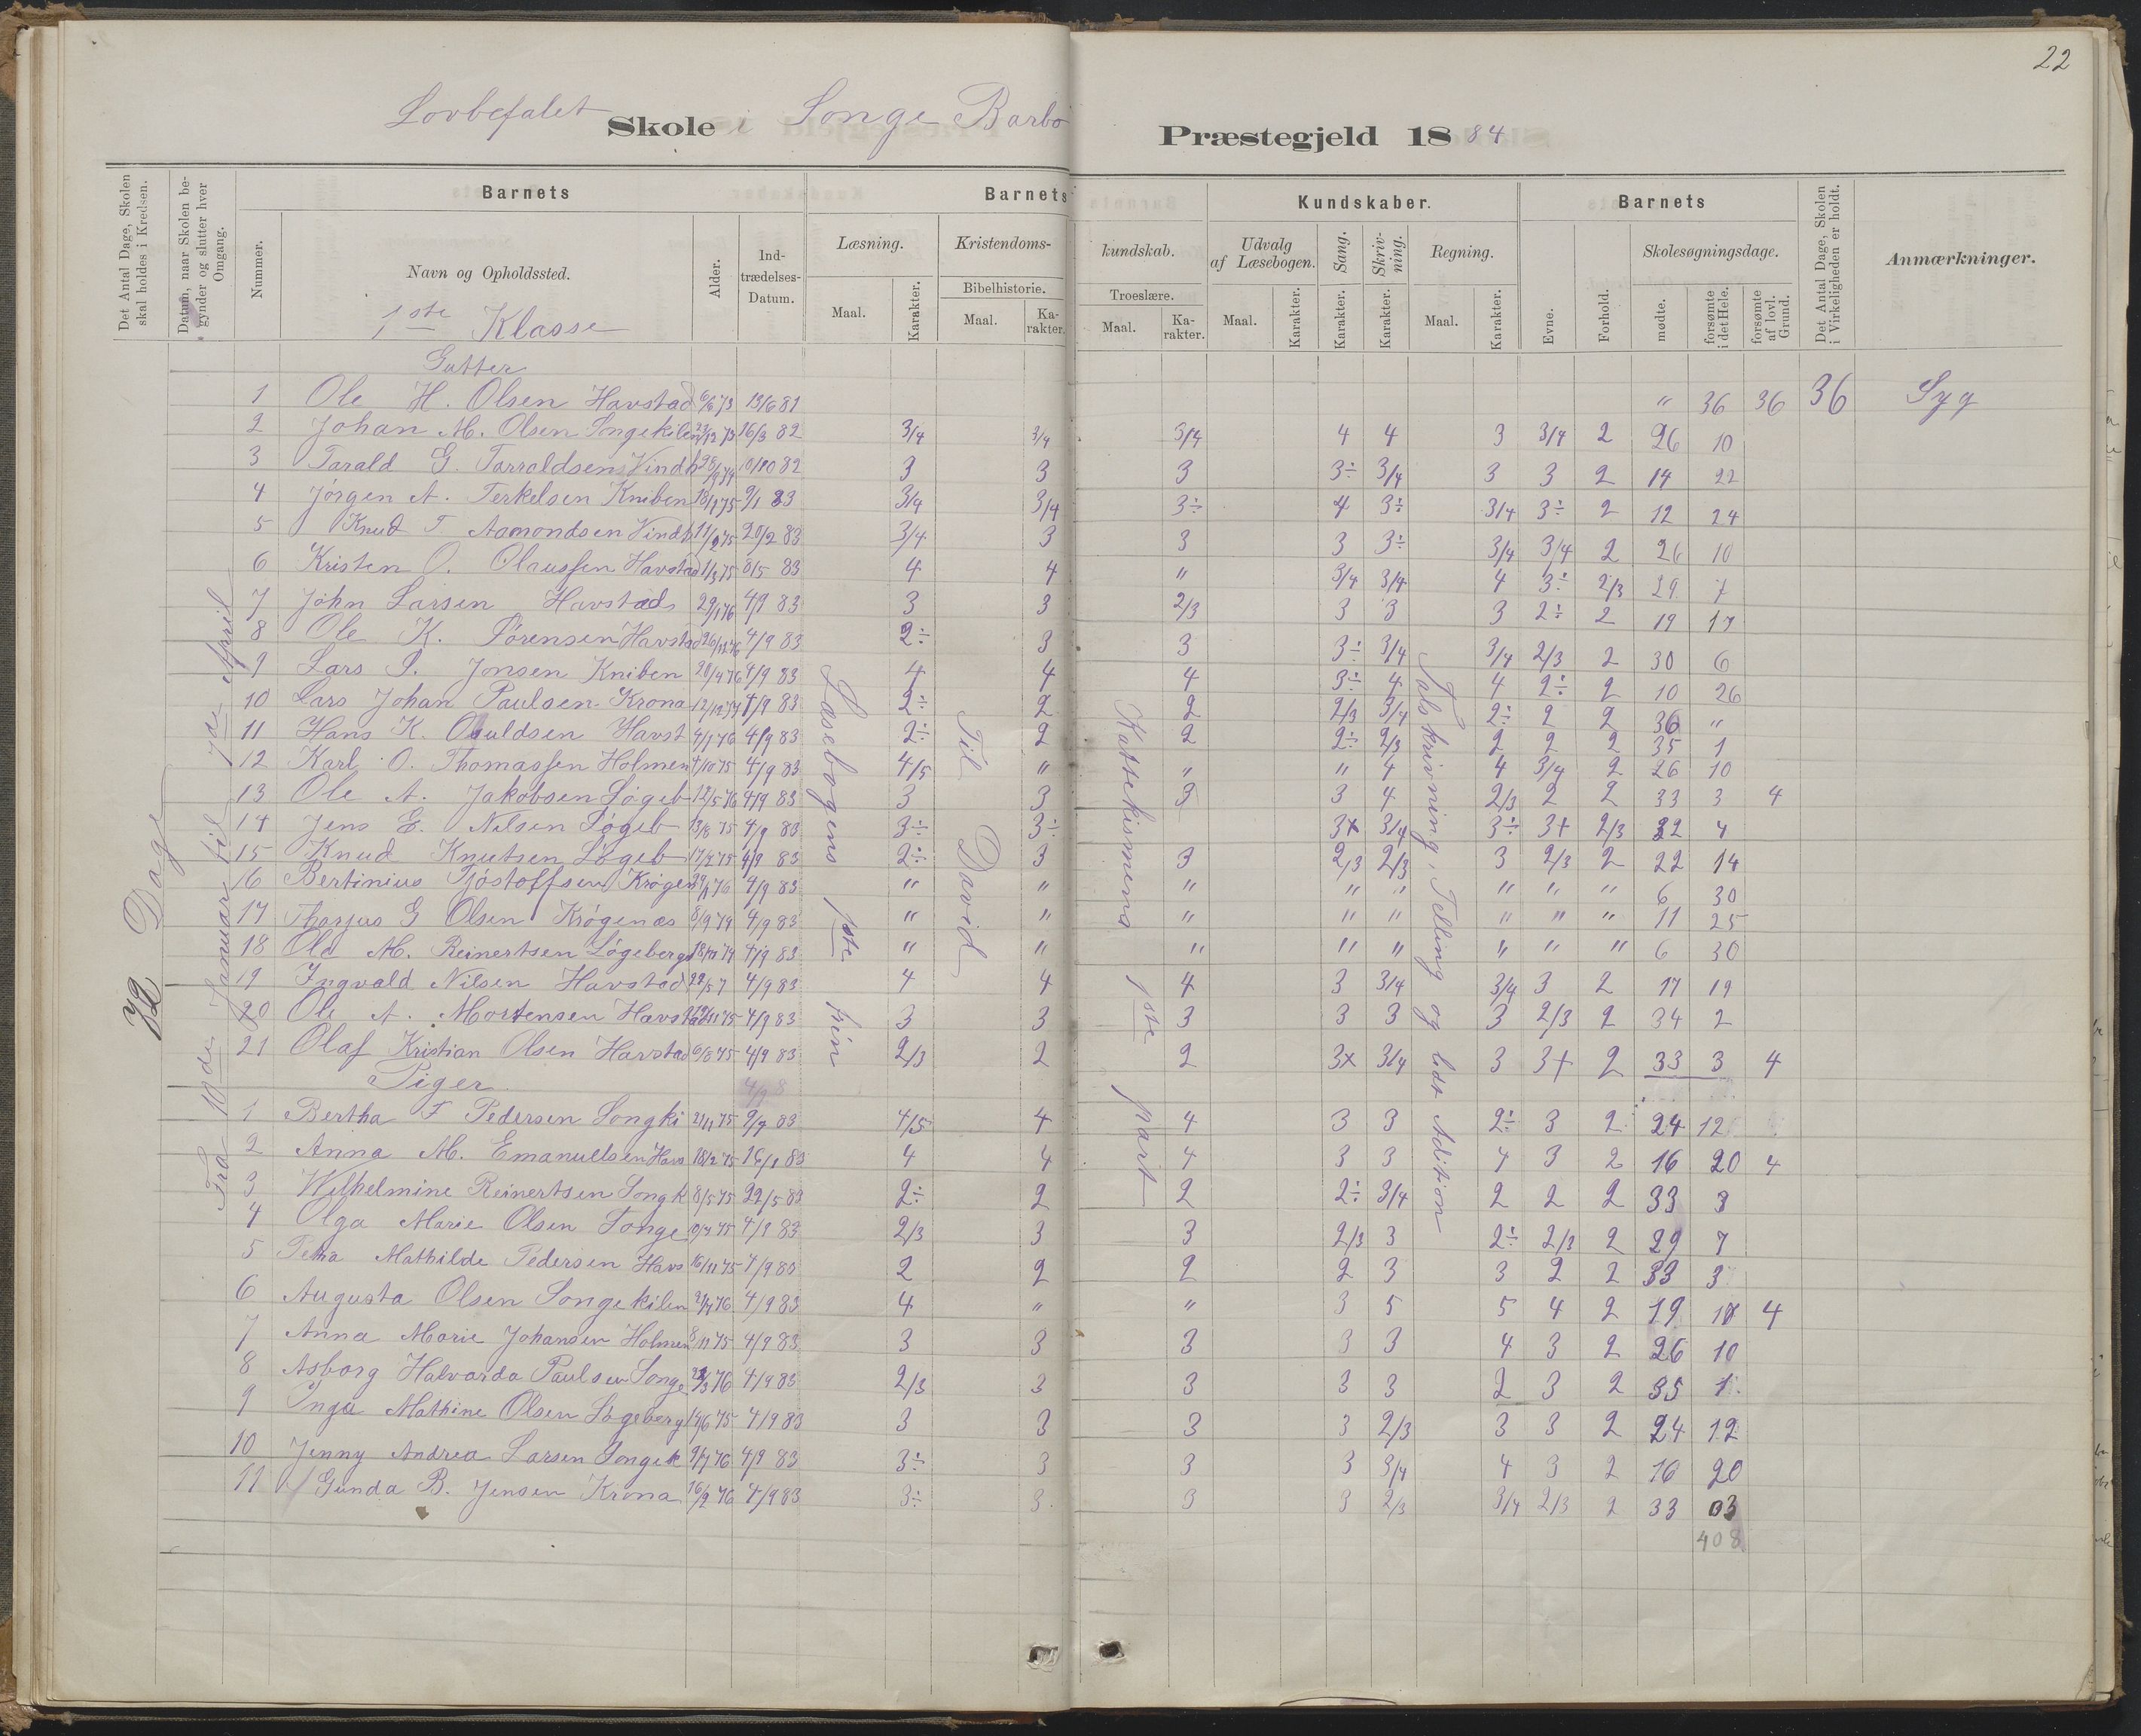 22
Lovbefalet Skole i Songe Barbo Præstegjeld 1884
Det Antal Dage, Skolen skal holdes i Kredsen.
Datum, naar Skolen begynder og slutter hver Omgang.
Barnets
Nummer.
Navn og Opholdssted.
Alder.
Indtrædelses-Datum.
Barnets Kundskaber.
Læsning.
Maal.
Karakter.
Kristendoms-kundskab.
Bibelhistorie.
Maal.
Karakter.
Troeslære.
Maal.
Karakter.
Udvalg af Læsebogen.
Maal.
Karakter.
Sang.
Karakter.
Skrivning.
Karakter.
Regning.
Maal.
Karakter.
Barnets
Evne.
Forhold.
Skolesøgningsdage.
mødte.
forsømte i det Hele.
forsømte af lovl. Grund.
Det Antal Dage, Skolen i Virkeligheden er holdt.
Anmærkninger.
72 Dage
Fra 10de Januar til 7de April
Læsebogens 1ste trin
Til David
Kattekismens 1ste part
Talskrivning, Telling og lidt Adition
1ste Klasse
Gutter
1 Ole H. Olsen Havstad 6/6 73 13/6 81 " 36 36 36 Syg
2 Johan M. Olsen Songekilen 73 16/3 82 3/4 3/4 3/4 4 4 3 3/4 2 26 10
3 Tarald G. Tarraldsen Vindh 10/10 82 3 3 3 3÷ 3/4 3 3 2 14 22
4 Jørgen A. Terkelsen Kniben 18/1 75 9/1 83 3/4 3/4 3÷ 4 3÷ 3/4 3÷ 2 12 24
5 Knud T. Asmondsen Vindh 75 20/2 83 3/4 3 3 3 3÷ 3/4 3/4 2 26 10
6 Kristen O. Olaussen Havstad 1/3 75 83 4 4 " 3/4 3/4 4 3÷ 2/3 29 7
7 John Larsen Havstad 29/1 76 4/9 83 3 3 2/3 3 3 3 2÷ 2 19 17
8 Ole K. Sørensen Havstad 4/9 83 2÷ 3 3 3÷ 3/4 3/4 2/3 2 30 6
9 Lars S. Jonsen Kniben 20/4 76 4/9 83 4 4 4 3÷ 4 4 2÷ 2 10 26
10 Lars Johan Paulsen Krona 4/9 83 2÷ 2 2 2/3 3/4 2÷ 2 2 36 "
11 Hans K. Havst 4/1 76 4/9 83 2÷ 2 2 2÷ 2/3 2 2 2 35 1
12 Karl O. Thomassen Holmen 75 4/9 83 4/5 " " " 4 4 3/4 2 26 10
13 Ole A. Jakobsen Løgeb 12/5 76 4/9 83 3 3 3 3 4 2/3 2 2 33 3 4
14 Jens E. Nilsen Løgeb 75 4/9 83 3÷ 3÷ 3+ 3/4 3÷ 3+ 2/3 32 4
15 Knud Knutsen Løgeb 75 4/9 83 2÷ 3 3 2/3 2/3 3 2/3 2 22 14
16 Bertinius Tjøstoffsen Krøgen 76 4/9 83 " " " " " " " " 6 30
17 G Olsen Krøgenæs 8/9 74 4/9 83 " " " " " " " " 11 25
18 Ole M. Reinertsen Løgeberg 4/9 83 " " " " " " " " 6 30
19 Ingvald Nilsen Havstad 4/9 83 4 4 4 3 3/4 3/4 3 2 17 19
20 Ole A. Mortensen Havstad 75 4/9 83 3 3 3 3 3 3 2/3 2 34 2
21 Olaf Kristian Olsen Havstad 6/8 75 4/9 83 2/3 2 2 3+ 3/4 3 3+ 2 33 3 4
Piger
1 Bertha F Pedersen Songki 75 83 4/5 4 4 3 3 2÷ 3 2 24 12
2 Anna M. Emanuelsen Havs 18/2 75 16/1 83 4 4 4 3 3 4 3 2 16 20 4
3 Wilhelmine Reinertsen Songk 8/5 75 22/5 83 2÷ 2 2 2÷ 3/4 2 2 2 33 3
4 Olga Marie Olsen Songe 75 4/9 83 2/3 3 3 2/3 3 2÷ 2/3 2 29 7
5 Petra Mathilde Pedersen Havs 16/11 75 4/9 83 2 2 2 2 3 3 2 2 33 3
6 Augusta Olsen Songekilen 76 4/9 83 4 " " 3 5 5 4 2 19 17 4
7 Anna Marie Johansen Holmen 75 4/9 83 3 3 3 3 3 4 3 2 26 10
8 Asborg Halvarda Paulsen Songe 76 4/9 83 2/3 3 3 3 3 2 3 2 35 1
9 Inga Mathine Olsen Løgeberg 75 4/9 83 3 3 3 3 2/3 3 3 2 24 12
10 Jenny Andrea Larsen Songek 76 4/9 83 3÷ 3 3 3 3/4 4 3 2 16 20
11 Gunda B. Jensen Krona 16/2 76 4/9 83 3÷ 3 3 3 2/3 3/4 2/3 2 33 03
408